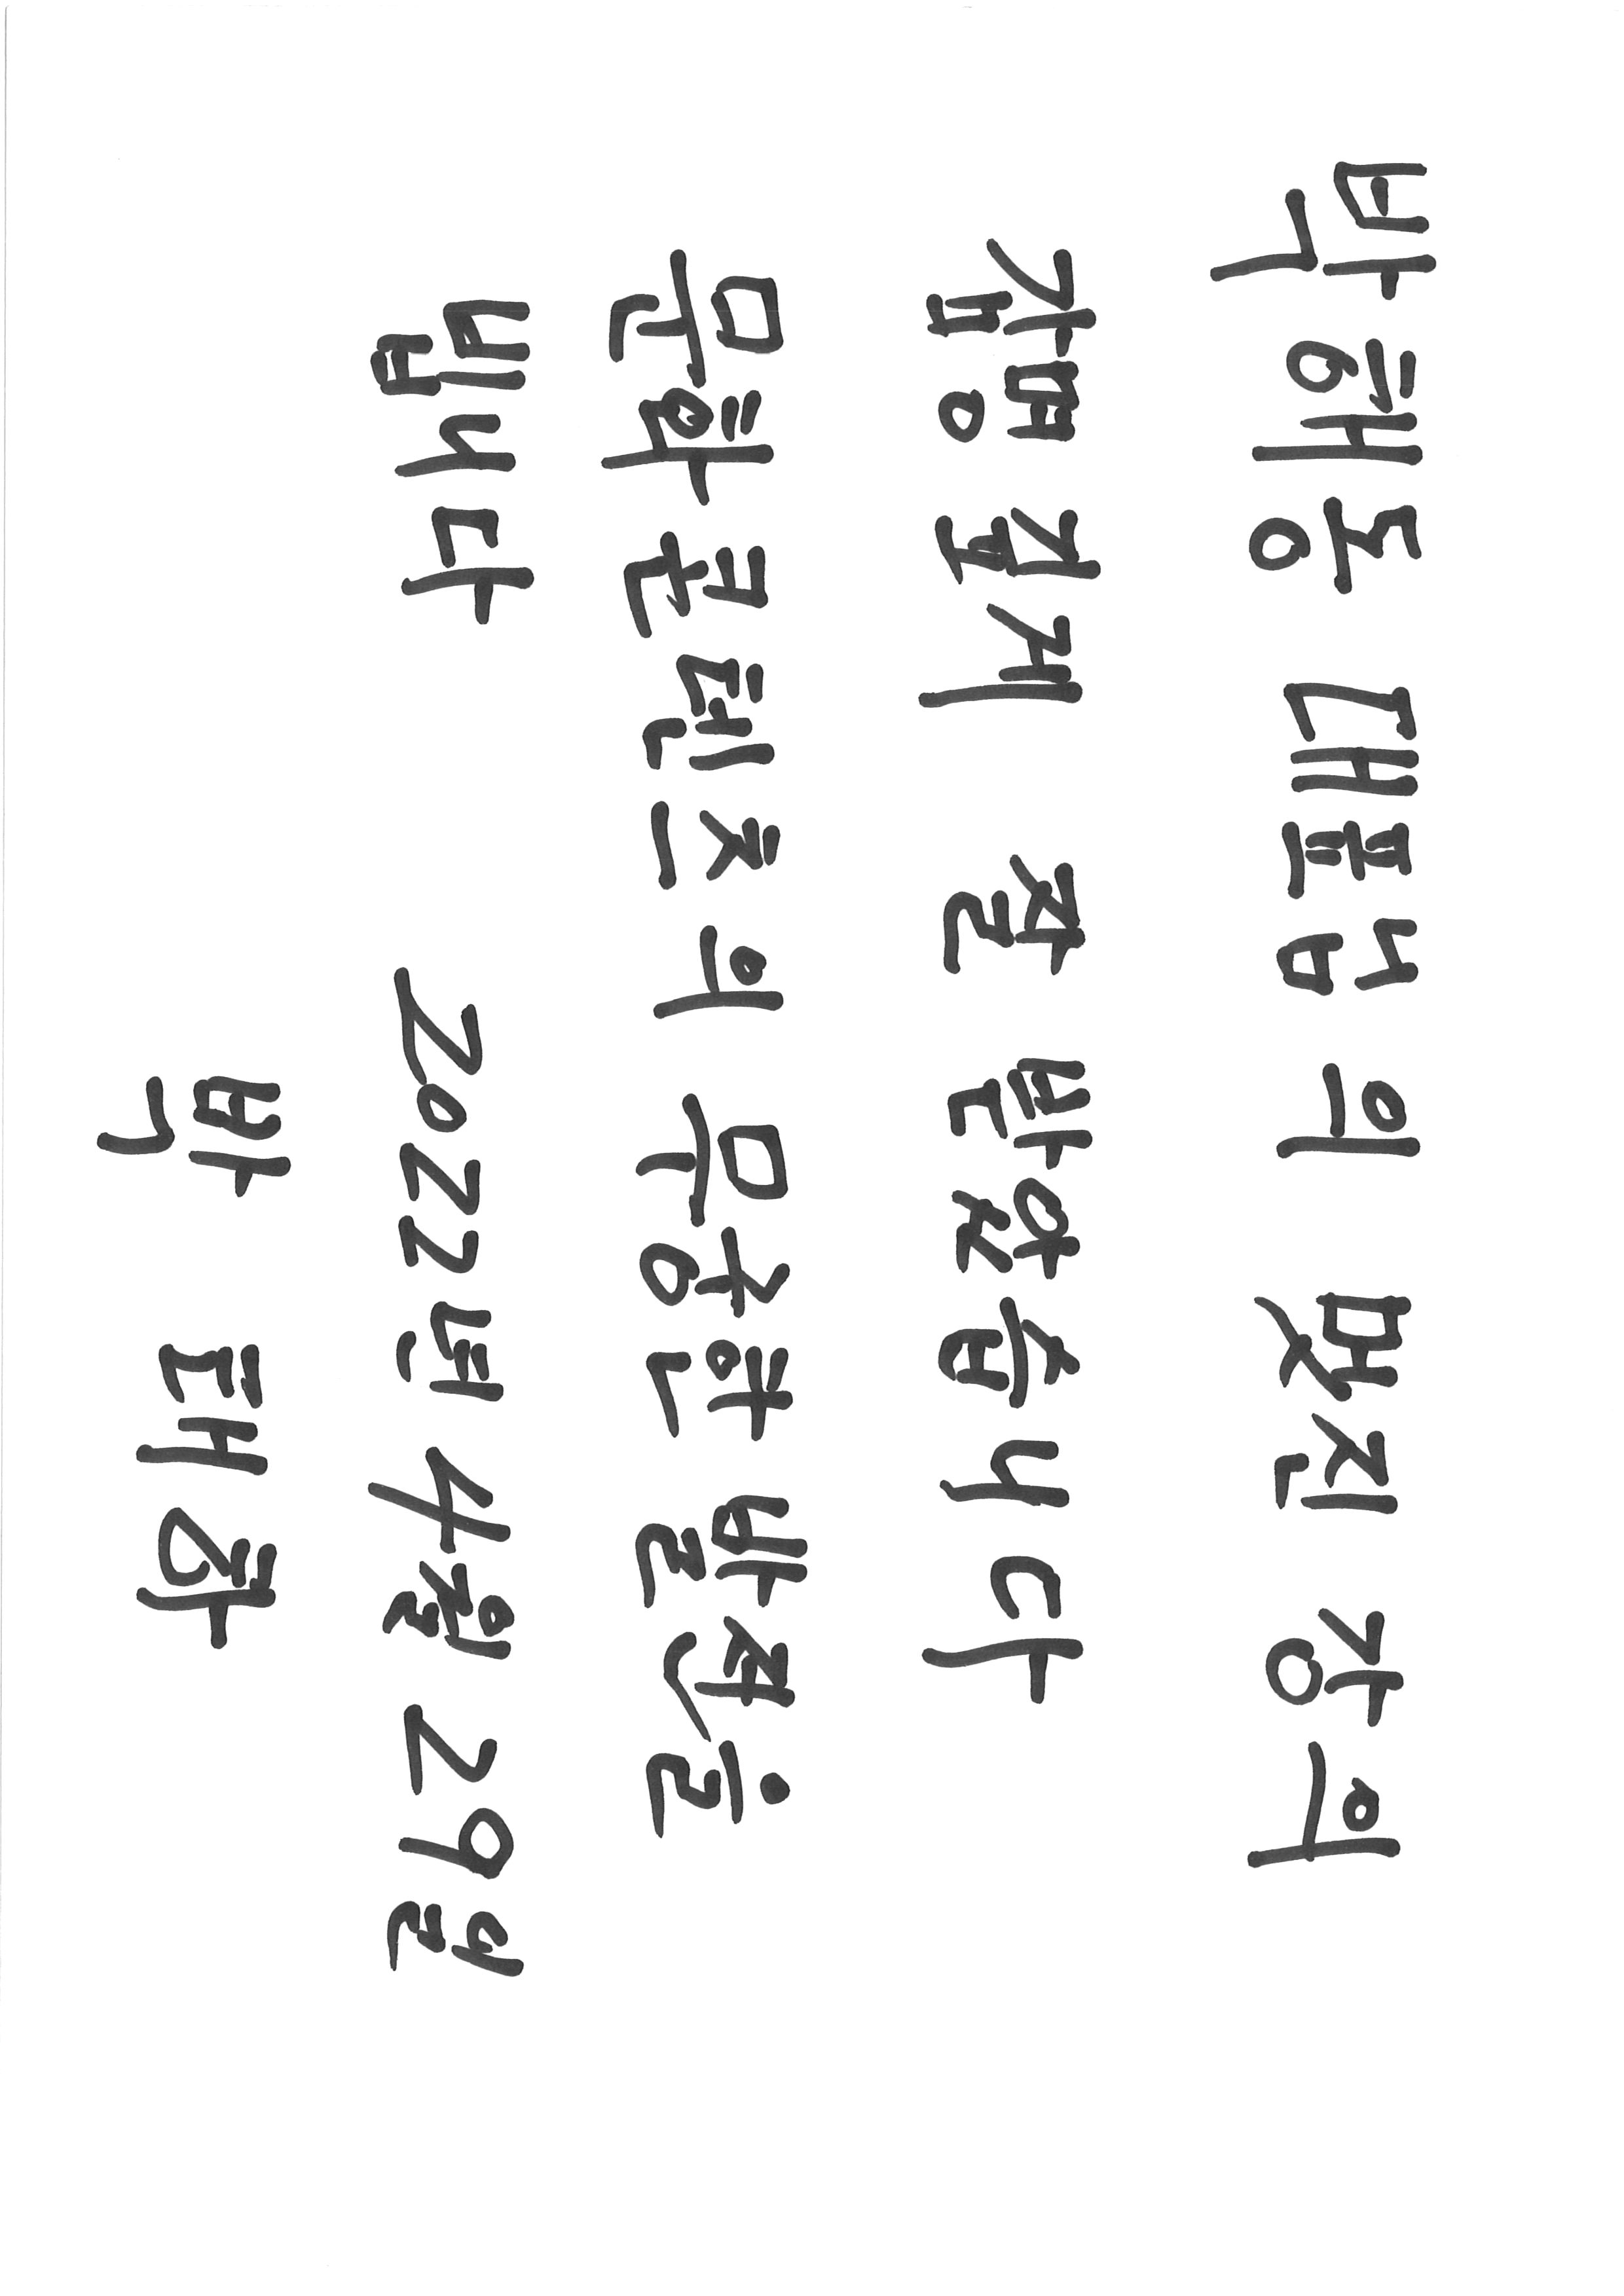 박해동 대표님의 멋진 강의
감명깊게 잘 받았습니다
문화콘텐츠의 무궁한 발전을
빕니다
2022년 4월 29일
박 태화